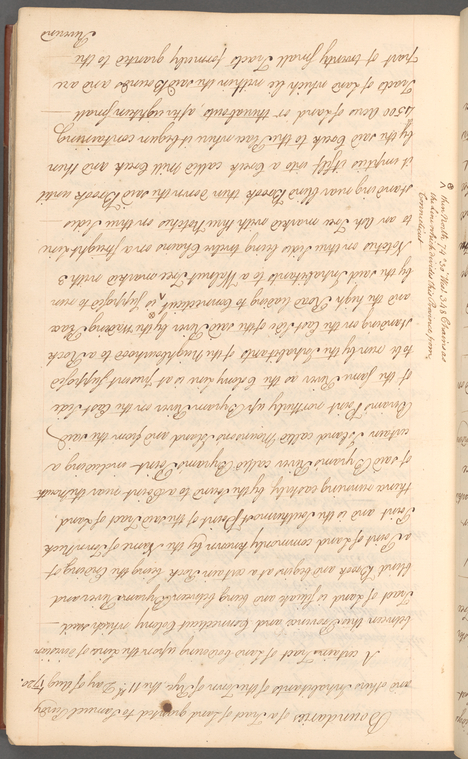 Boundaries of a Tract of Land granted to Samuel Purdy
and others Inhabitants of the Town of Rye, the 11th Day of Aug. 1720.
A certain Tract of Land bordering upon the Line of division
between this Province and Connecticut Colony which said
Tract of Land is situate and being between Byrams River and
blind Brook and begins at a certain Rock being the ending of
a Point of Land commonly known by the Name of
Point and is the Southermost Point of the said Tract of Land
thence running easterly by the Sound to a Point near the mouth
of said Byrams River called Byrams Point including a
certain Island called Island and from the said
Byrams Point northerly up Byrams River on the East Side
of the same River as the Colony line is at present supposed
to be run by the Inhabitants of the Neighbourhood to a Rock
standing on the East side of the said River by the wading Place
and the high Road leading to Connecticut ^ supposed to run
by the said Inhabitants to a Walnut Tree marked with 3
Notches on three sides being twelve Chains on a straight line
to an Ash Tree marked with three Notches on three sides
standing near blind Brook then down the said Brook until
it empties itself into a Creek called Mill Creek and then
by the said Creek to the Place where it begun containing
4500 Acres of Land or thereabouts, after eighteen small
Tracts of Land which lie within the said Bounds and are
part of twenty small Tracts formerly granted to the
^ then North 74° 30' West 348 Chains as
the line which divides this Province from
Connecticut